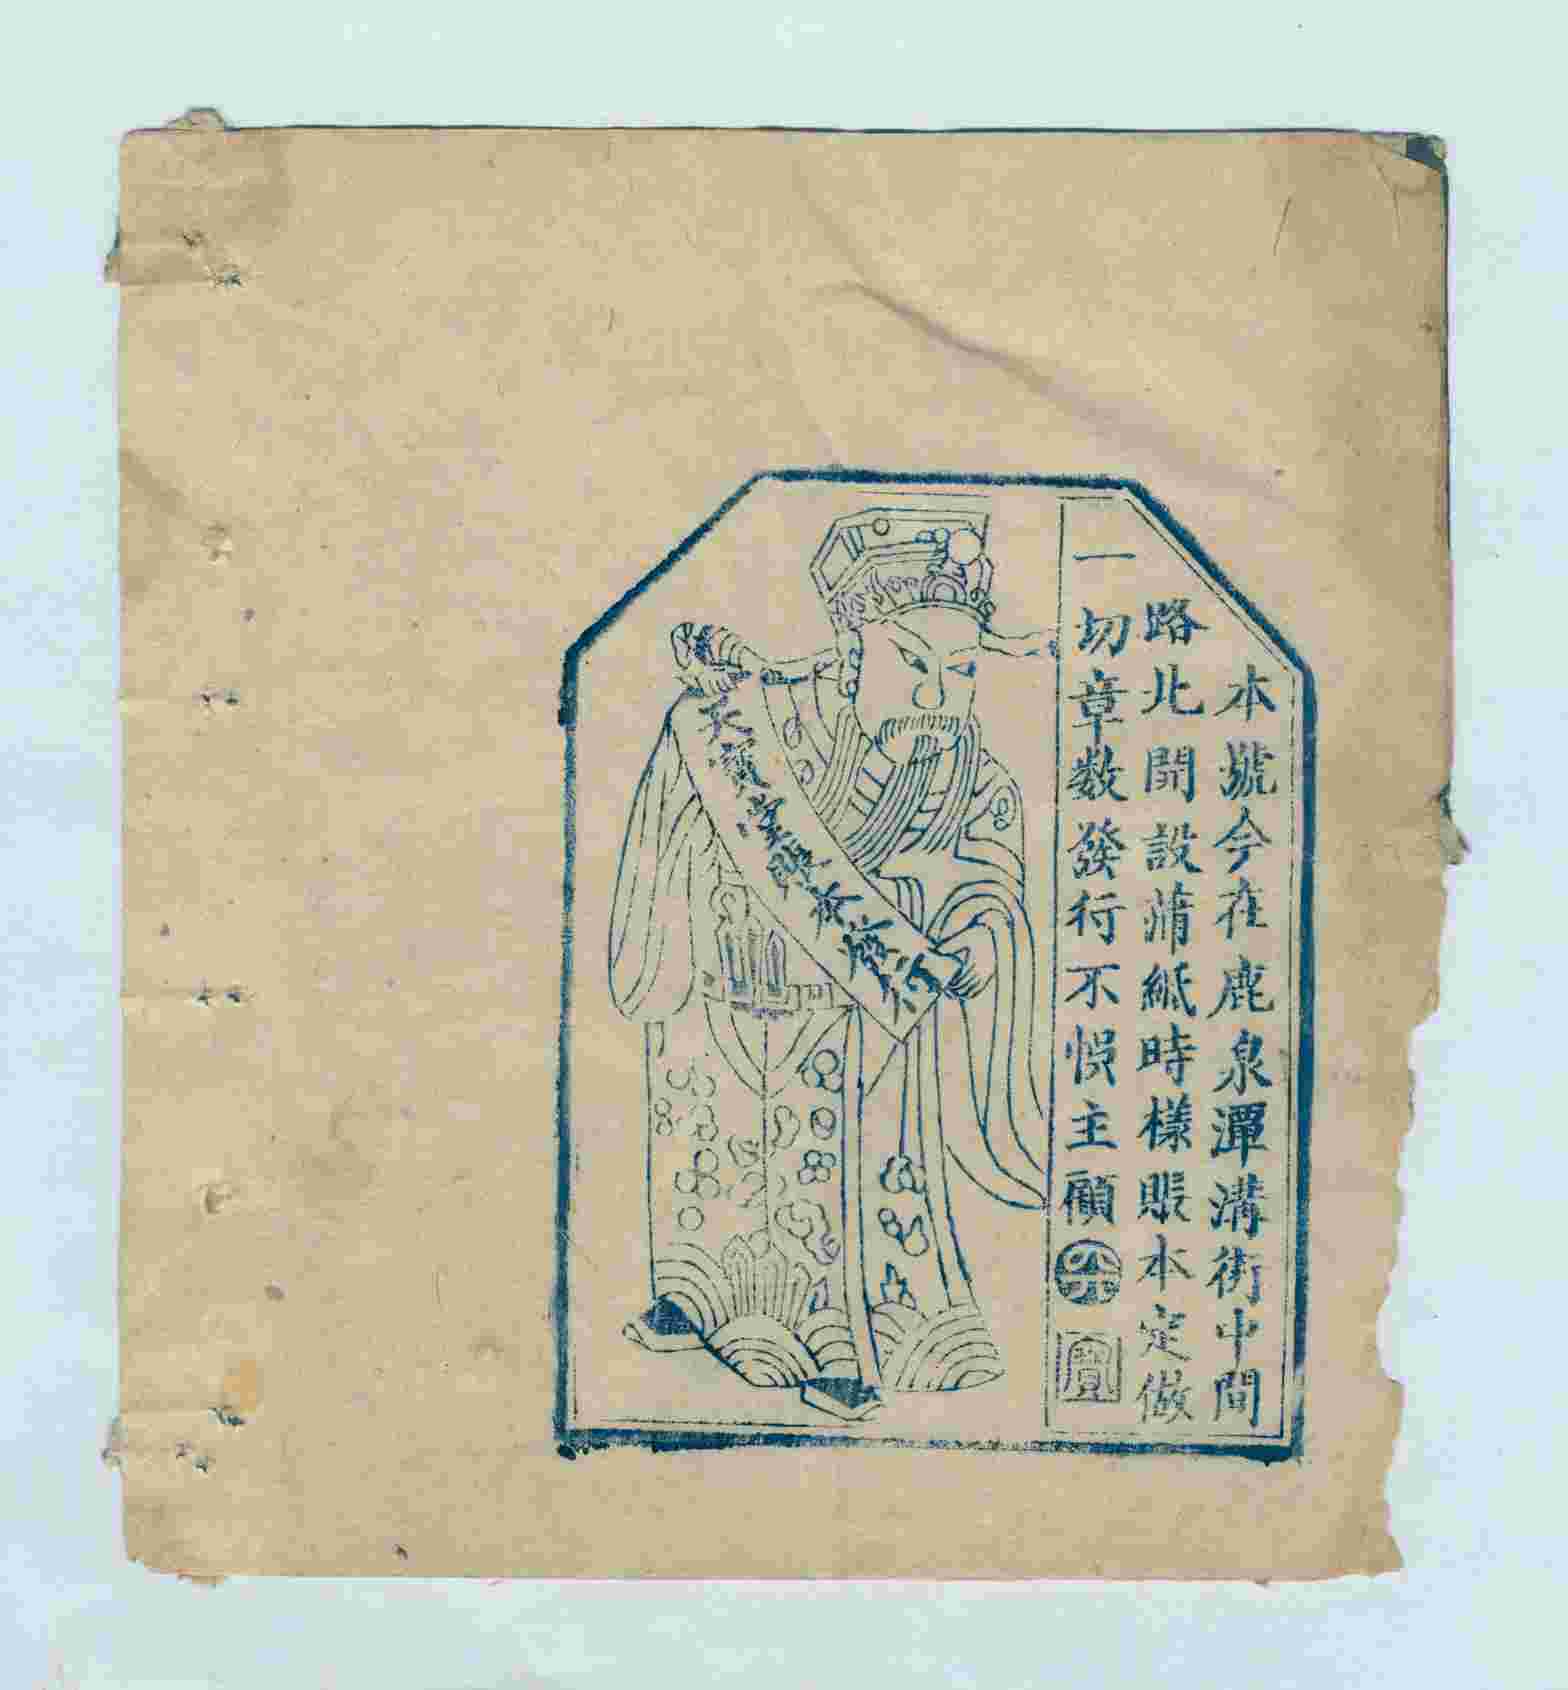 本號今在鹿泉潭溝街中間
路北開設蒲紙時樣賬本定做
一切章数發行不悞主顧
寶
天寶堂賬發行